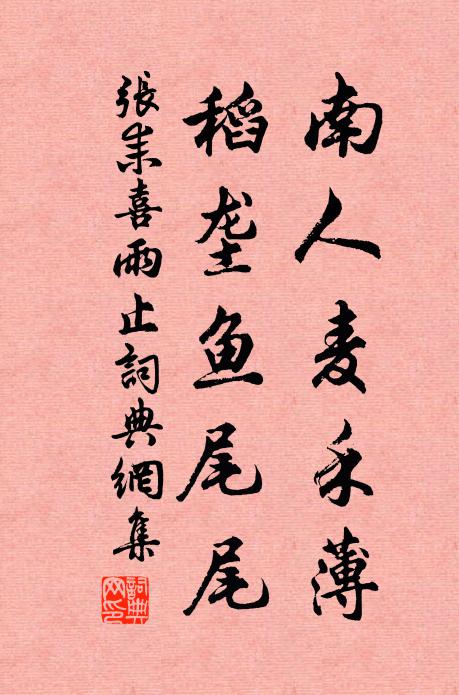 南人麦禾薄
稻垄鱼尾尾
張耒喜雨止詞典網集
詞典网印